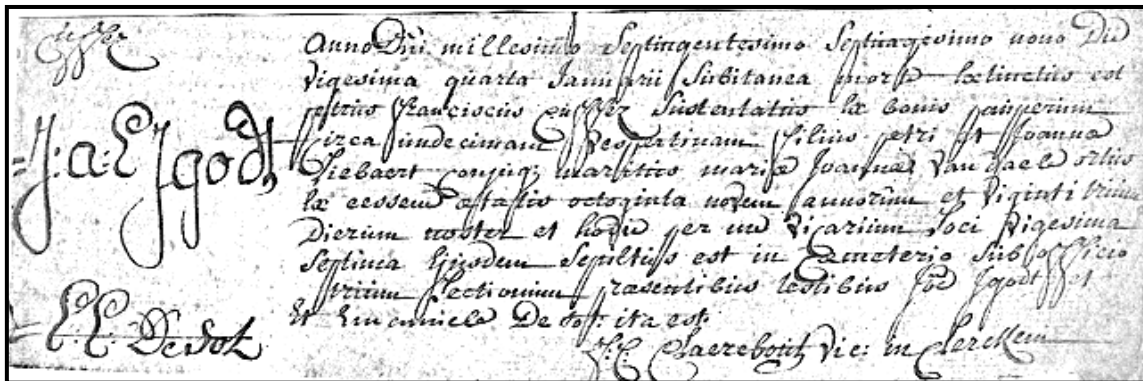 Anno Dni millesimo Septingentesimo Septuagesimo nono Die
vigesima quarta Januarii Subitanea morte extinctus est
petrus franciscus Sustentatus ex bonis pauperum
circa undecimam vespertinam filius petri et Joannæ
Siebaert conjug: maritus mariæ Joannæ van daele ortus
ex eessem ætatis octoginta novem annorum et viginti trium
Dierum noster et hodie per me vicarium loci vigesima
Septima Ejusdem Sepultus est in cæmeterio Sub officio
trium Lectionum præsentibus testibus Jgodt
Et Emanuele De Sot. ita est
J: a: E Jgodt
E E De Sot
J. C. Claerebout vic: in Clercken